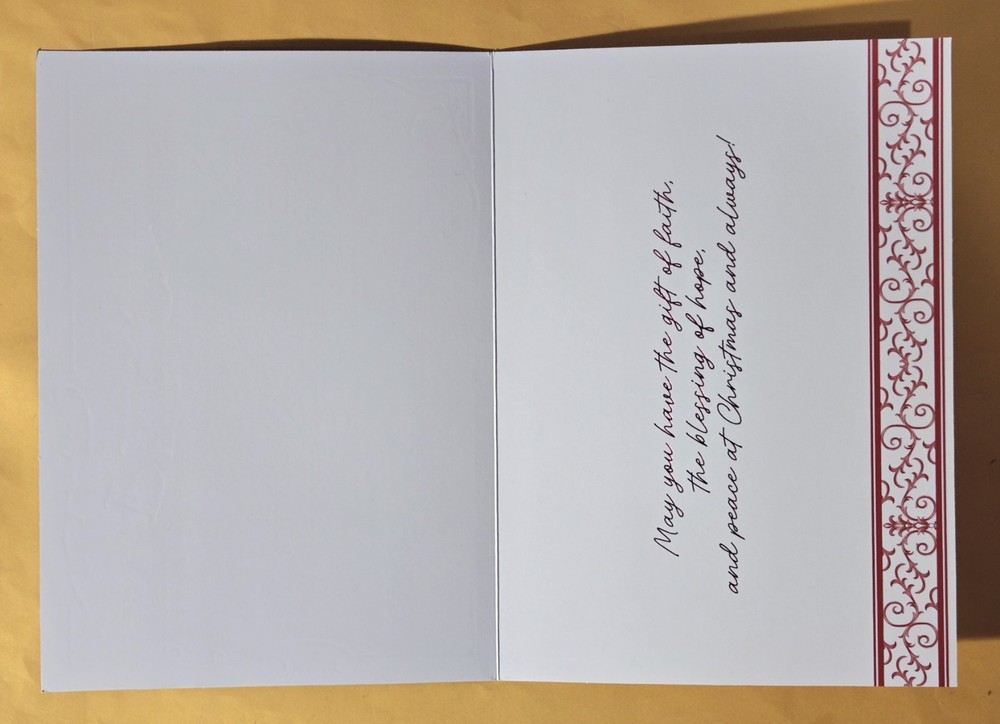 May you have the gift of faith,
the blessing of hope,
and peace at Christmas and always!